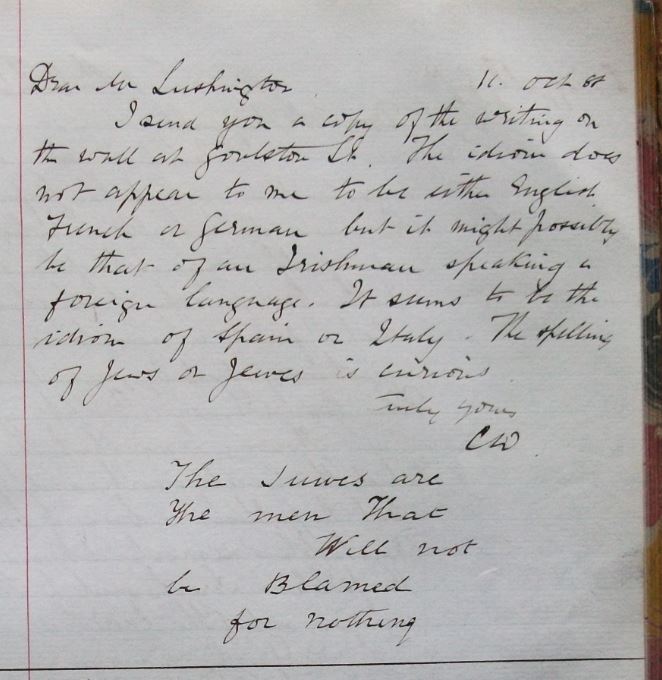 Dear Mr Lushington 11. Oct 88
I send you a copy of the writing on
the wall at Goulston St. The idiom does
not appear to me to be either English,
French or German but it might possibly
be that of an Irishman speaking a
foreign language. It seems to be the
idiom of Spain or Italy. The spelling
of Jews or Jewes is curious
Truly yours
CW
The Juwes are
The men That
Will not
be Blamed
for nothing